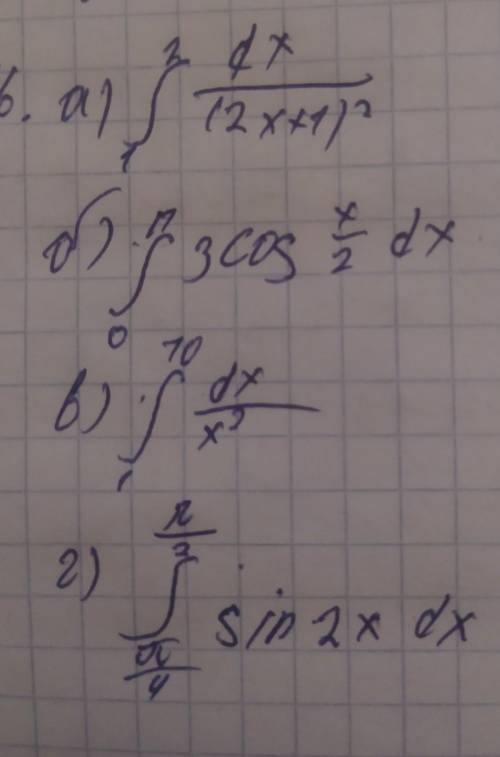 6. а) ∫₁² dx / (2x+1)²
б) ∫₀^π 3cos x/2 dx
в) ∫₁¹⁰ dx / x²
г) ∫_{π/4}^{π/2} sin 2x dx